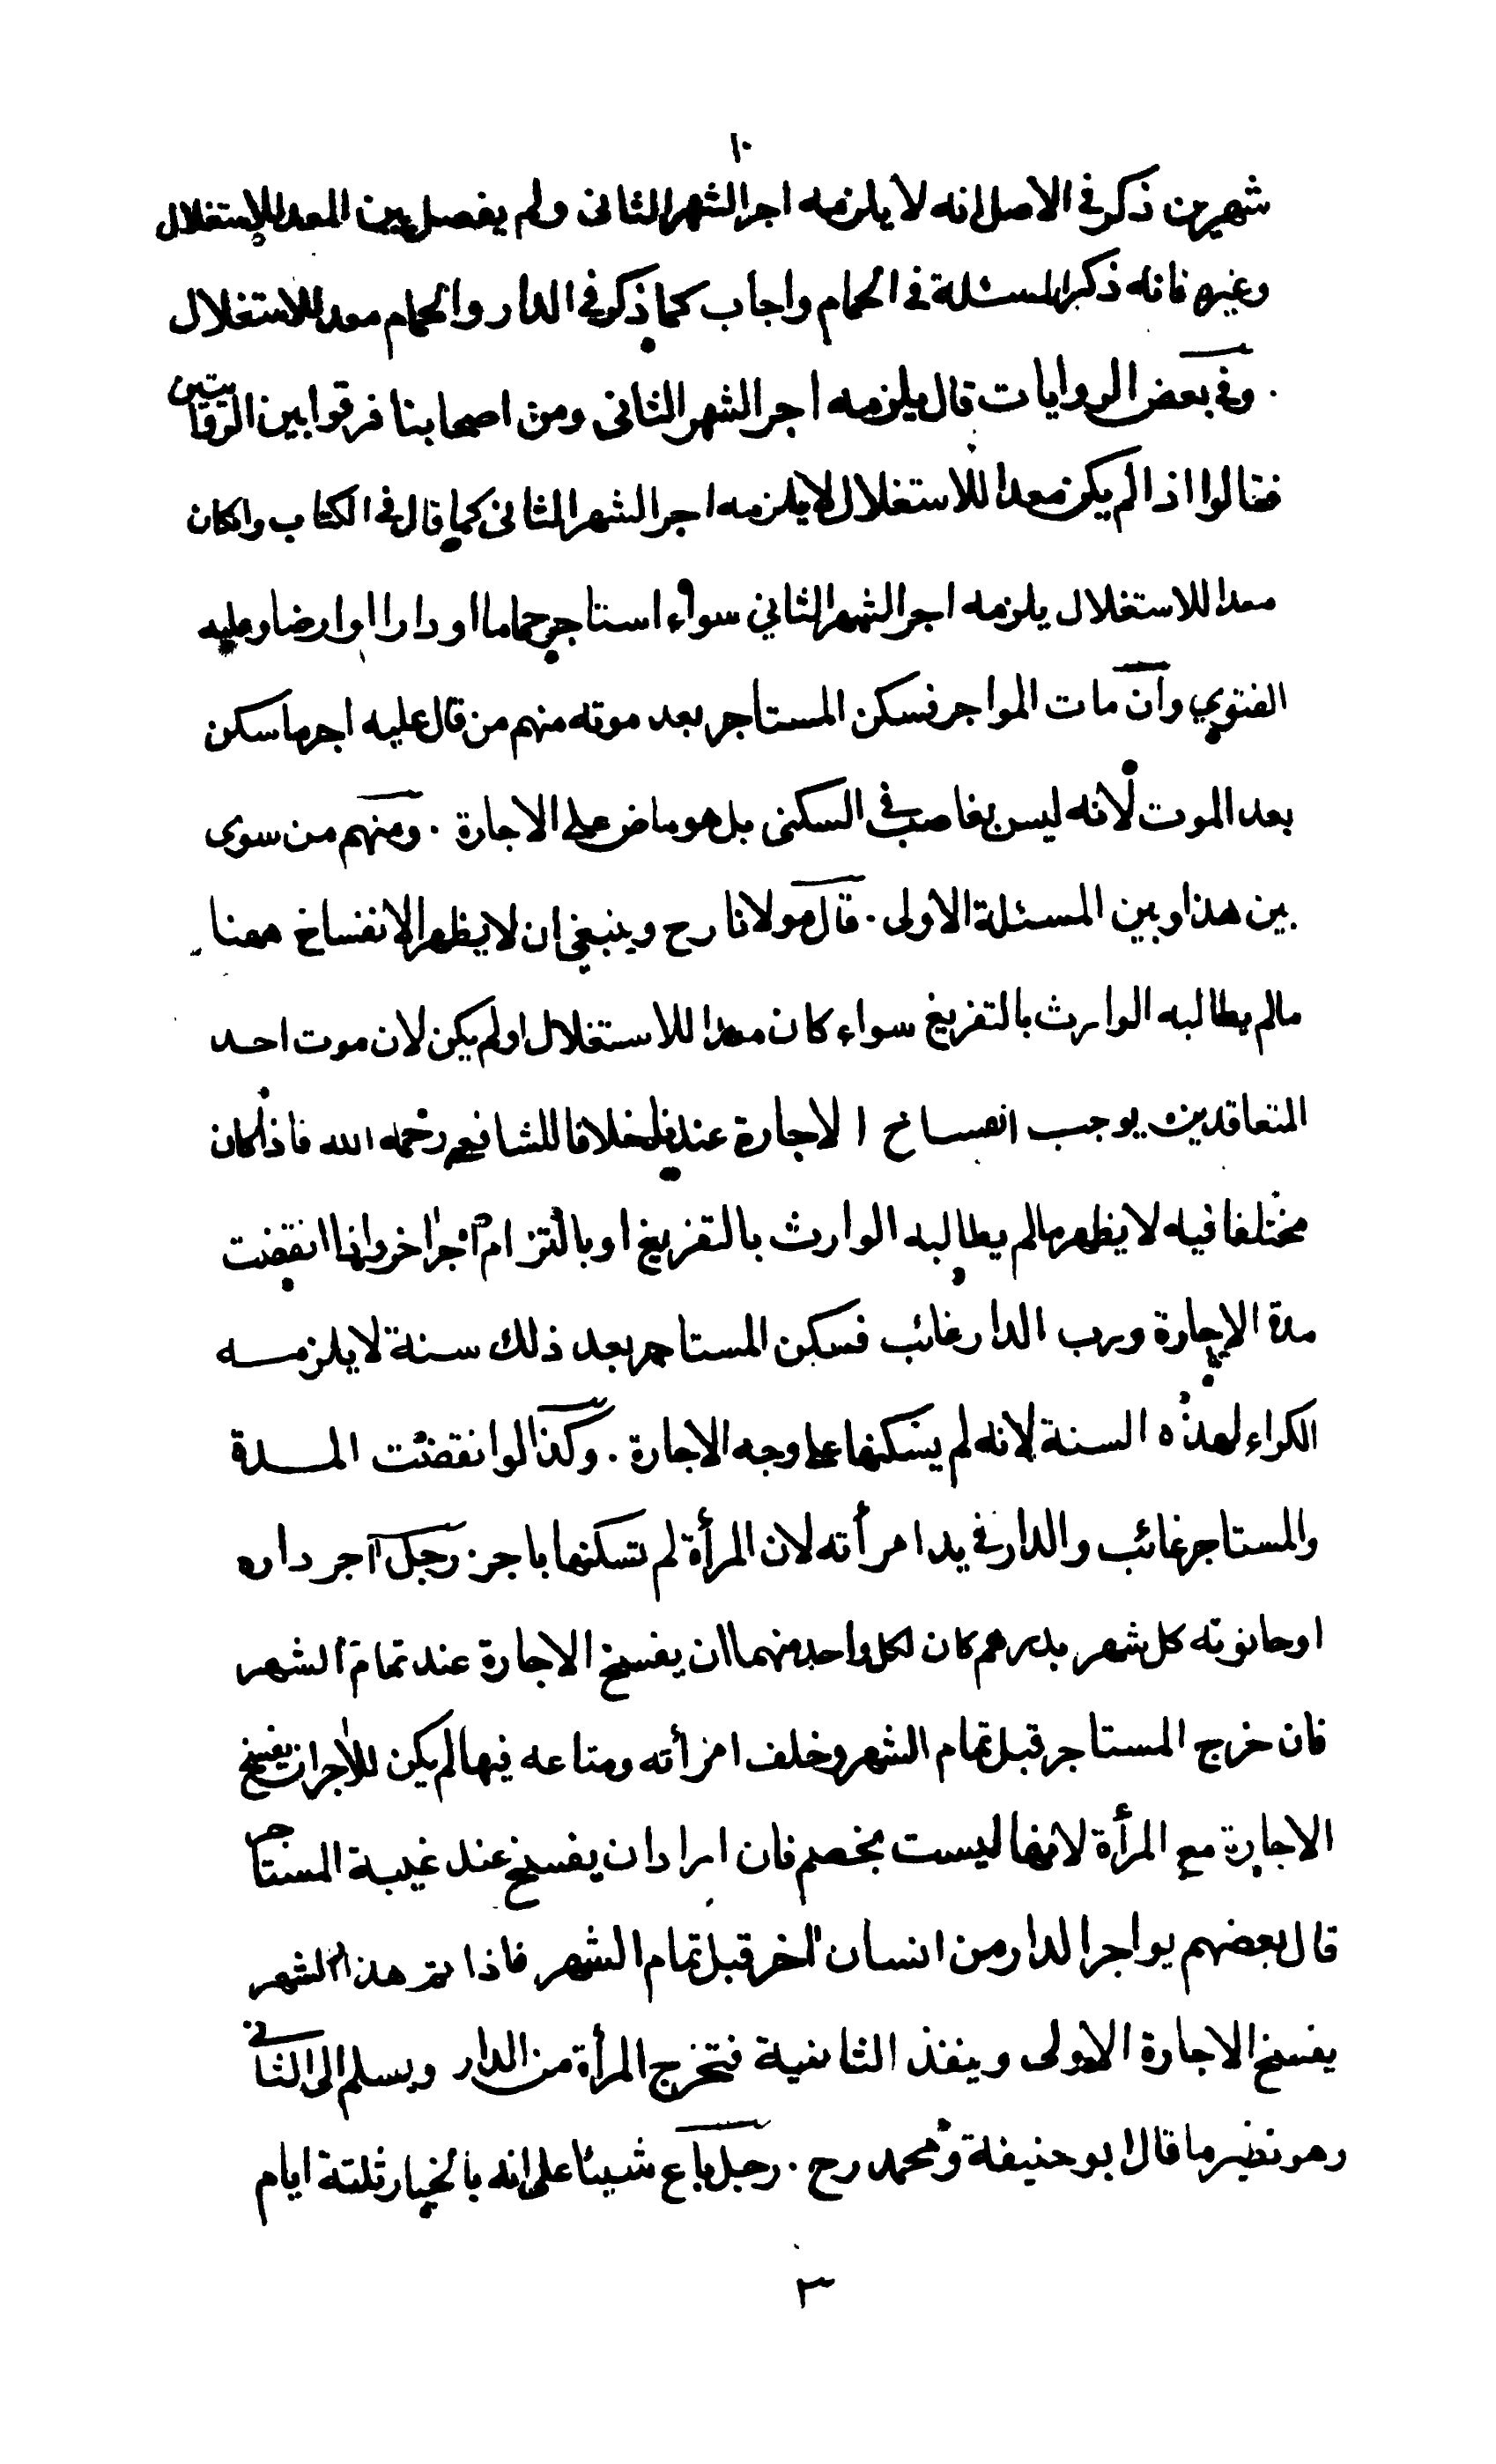 ١٠
شهرين ذكر في الاصل انه لا يلزمه اجر الشهر الثانى ولم يفصل بين المعد للاستغلال
وغيره فانه ذكر المسئلة في الحمام واجاب كما ذكر في الدار والحمام معد للاستغلال
. وفي بعض الروايات قال يلزمه اجر الشهر الثانى ومن اصحابنا فرقوا بين الروايتين
فقالوا اذا لم يكن معدا للاستغلال لا يلزمه اجر الشهر الثانى كما قال في الكتاب وان كان
معدا للاستغلال يلزمه اجر الشهر الثاني سواء استاجر حماما او دارا او ارضا وعليه
الفتوي وان مات المواجر فسكن المستاجر بعد موته منهم من قال عليه اجر ما سكن
بعد الموت لانه ليس بغاصب في السكنى بل هو ماض على الاجارة . ومنهم من سوى
بين هذا وبين المسئلة الاولى . قال مولانا رح وينبغي ان لا يظهر الانفساخ ههنا
مالم يطالبه الوارث بالتفريغ سواء كان معدا للاستغلال او لم يكن لان موت احد
المتعاقدين يوجب انفساخ الاجارة عندنا خلافا للشافعي رحمه الله فاذا كان
مختلفا فيه لا يظهر مالم يطالبه الوارث بالتفريغ او بالتزام اجر اخر واذا انقضت
مدة الاجارة ورب الدار غائب فسكن المستاجر بعد ذلك سنة لا يلزمه
الكراء لهذه السنة لانه لم يسكنها على وجه الاجارة . وكذا لو انقضت المدة
والمستاجر غائب والدار في يد امرأته لان المرأة لم تسكنها باجر . رجل آجر داره
او حانوته كل شهر بدرهم كان لكل واحد منهما ان يفسخ الاجارة عند تمام الشهر
فان خرج المستاجر قبل تمام الشهر وخلف امرأته ومتاعه فيها لم يكن للآجر ان يفسخ
الاجارة مع المرأة لانها ليست بخصم فان اراد ان يفسخ عند غيبة المستاجر
قال بعضهم يواجر الدار من انسان آخر قبل تمام الشهر فاذا تم هذا الشهر
يفسخ الاجارة الاولى وينفذ الثانية فتخرج المرأة من الدار ويسلم الى الثاني
وهو نظير ما قال ابو حنيفة ومحمد رح . رجل باع شيئا على انه بالخيار ثلثة ايام
٣